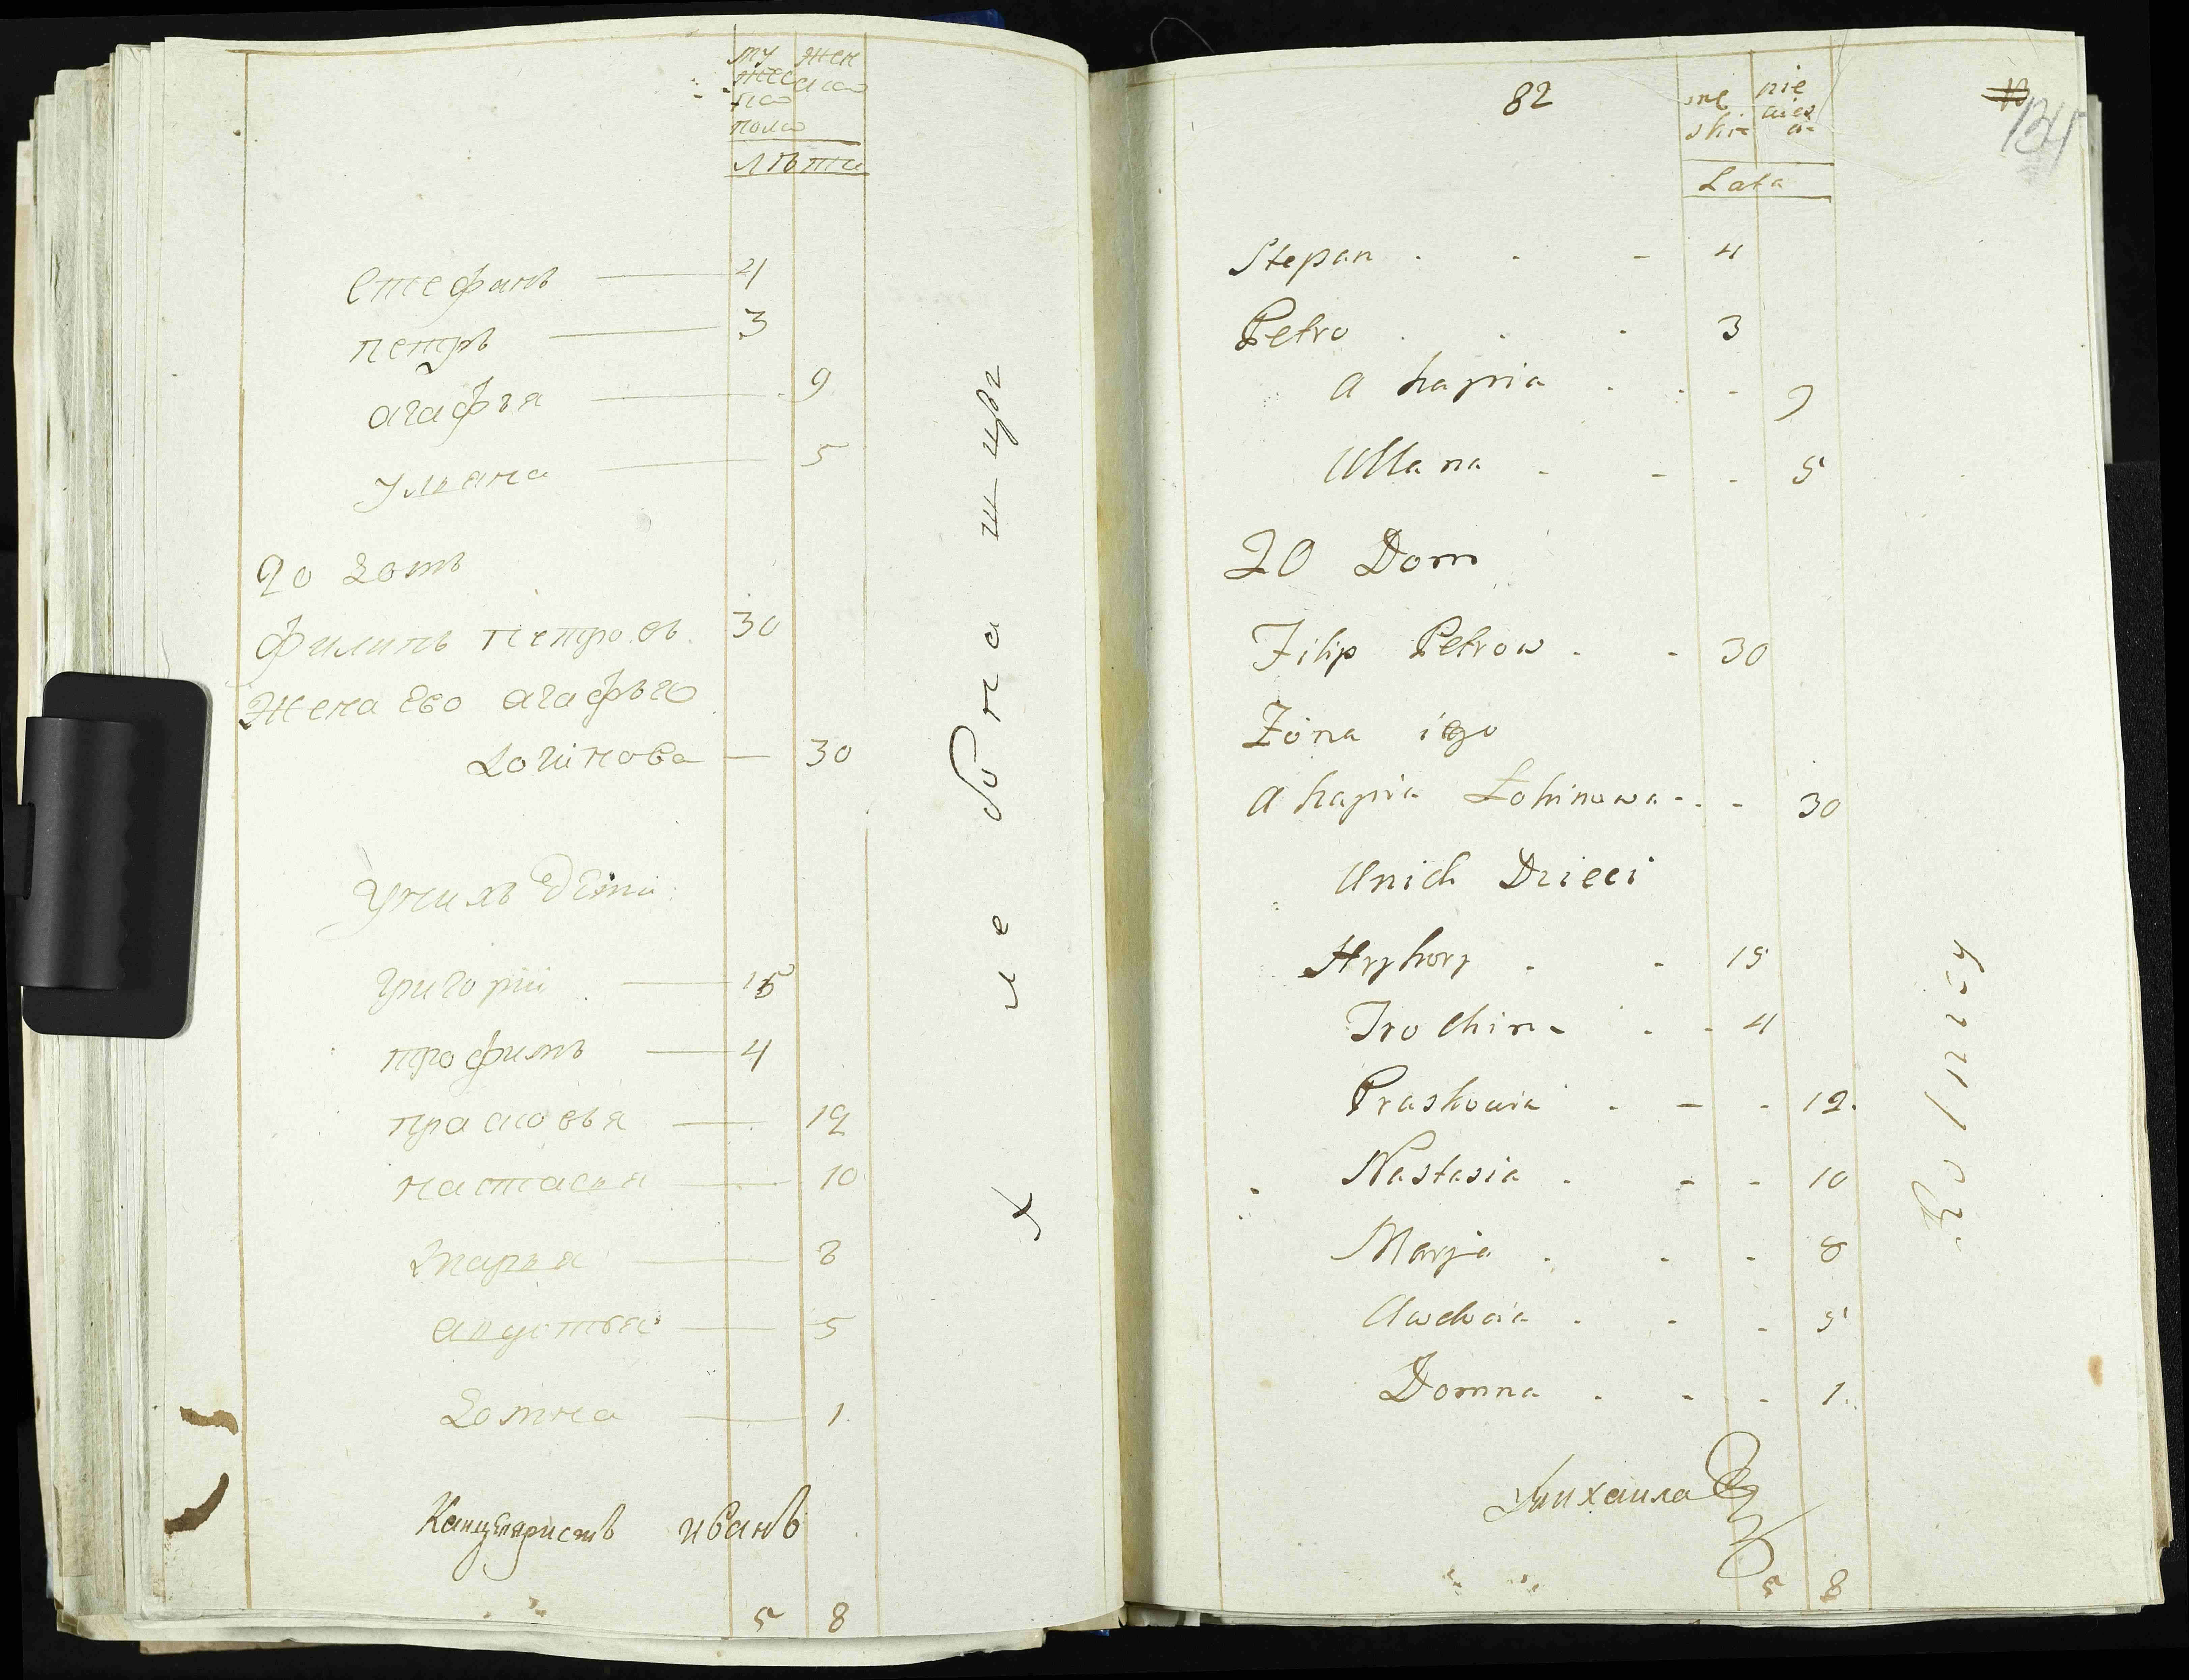 му жен
жес ска
ка
пола
лѣта
Стефанъ 4
петръ 3
агафья 9
ульяна 5
20 домъ
филипъ петровъ 30
Жена Его агафья
Логинова 30
У нихъ дети
григорий 15
трофимъ 4
прасковья 12
настасья 10
марья 8
авдотья 5
Домна 1
Канцеляристъ иванъ
5 8
хлебнанщг
82
134
Lata
Stepan 4
Petro 3
ahapia 9
Ullana 5
20 Dom
Filip Petrow 30
Żona iego
ahapia Łohinowa 30
Unich Dzieci
Hryhory 15
Trochim 4
Praskowia 12
Nastasia 10
Marja 8
Awdocia 5
Domna 1
Rolnicy
Михаила
5 8